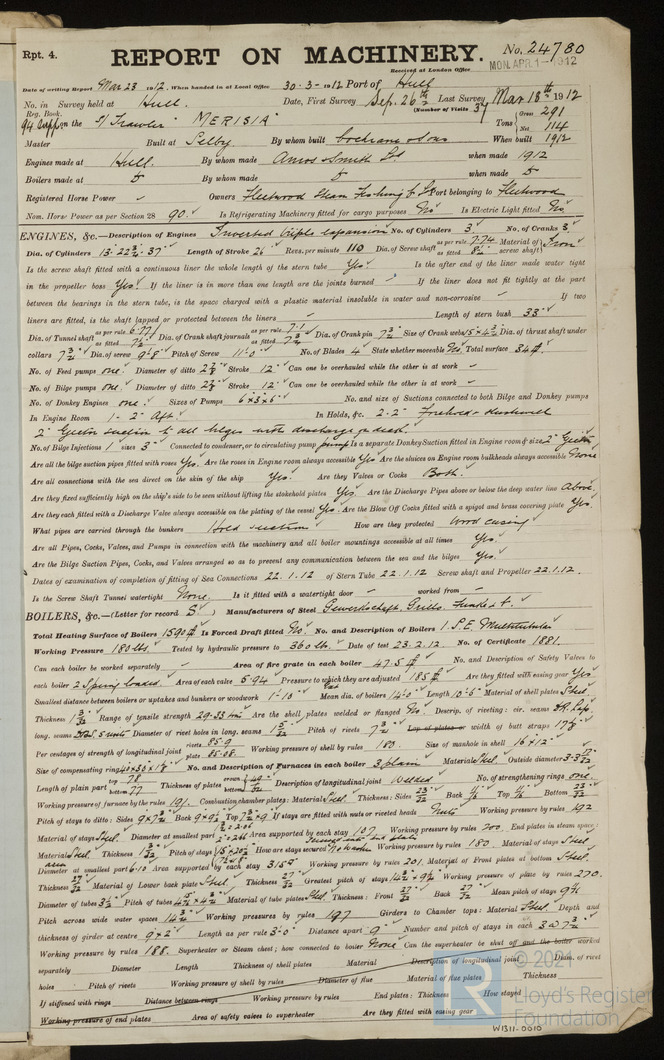 Rpt. 4.
REPORT ON MACHINERY.
No. 24780
Received at London Office MON. APR. 1 - 1912
Date of writing Report Mar 28 1912. When handed in at Local Office 30-3-1912 Port of Hull
No. in Survey held at Hull. Date, First Survey Sep. 26th Last Survey Mar 18th 1912
Reg. Book. (Number of Visits 37
94 Supp on the S/ Trawler "MERISIA" Tons Gross 291 Net 114
Master Built at Selby By whom built Cochrane & Sons When built 1912
Engines made at Hull. By whom made Amos & Smith Ld when made 1912
Boilers made at Do By whom made Do when made Do
Registered Horse Power Owners Fleetwood Steam Fishing Co Ld Port belonging to Fleetwood
Nom. Horse Power as per Section 28 90. Is Refrigerating Machinery fitted for cargo purposes No Is Electric Light fitted No.
ENGINES, &c.—Description of Engines Inverted triple expansion No. of Cylinders 3 No. of Cranks 3
Dia. of Cylinders 13. 22 3/4. 37 Length of Stroke 26 Revs. per minute 110 Dia. of Screw shaft as per rule 7.74 as fitted 8 1/4 Material of screw shaft Iron
Is the screw shaft fitted with a continuous liner the whole length of the stern tube Yes. Is the after end of the liner made water tight
in the propeller boss Yes. If the liner is in more than one length are the joints burned — If the liner does not fit tightly at the part
between the bearings in the stern tube, is the space charged with a plastic material insoluble in water and non-corrosive — If two
liners are fitted, is the shaft lapped or protected between the liners — Length of stern bush 33"
Dia. of Tunnel shaft as per rule 6.77 as fitted Dia. of Crank shaft journals as per rule 7.1 as fitted Dia. of Crank pin Size of Crank webs Dia. of thrust shaft under
collars Dia. of screw 9'-8" Pitch of Screw 11'-0" No. of Blades 4 State whether moveable No. Total surface 34
No. of Feed pumps one. Diameter of ditto Stroke 12" Can one be overhauled while the other is at work —
No. of Bilge pumps one. Diameter of ditto Stroke 12" Can one be overhauled while the other is at work —
No. of Donkey Engines one. Sizes of Pumps 6"x3"x6" No. and size of Suctions connected to both Bilge and Donkey pumps
In Engine Room 1-2" Aft. In Holds, &c. 2-2" Forehold & slushwell
2" Ejector suction to all bilges with discharge on deck.
No. of Bilge Injections 1 sizes 3" Connected to condenser, or to circulating pump pump Is a separate Donkey Suction fitted in Engine room & size 2" Ejector
Are all the bilge suction pipes fitted with roses Yes. Are the roses in Engine room always accessible Yes Are the sluices on Engine room bulkheads always accessible None
Are all connections with the sea direct on the skin of the ship Yes. Are they Valves or Cocks Both.
Are they fixed sufficiently high on the ship's side to be seen without lifting the stokehold plates Yes. Are the Discharge Pipes above or below the deep water line Above.
Are they each fitted with a Discharge Valve always accessible on the plating of the vessel Yes. Are the Blow Off Cocks fitted with a spigot and brass covering plate Yes.
What pipes are carried through the bunkers Hold suction How are they protected Wood casing
Are all Pipes, Cocks, Valves, and Pumps in connection with the machinery and all boiler mountings accessible at all times Yes.
Are the Bilge Suction Pipes, Cocks, and Valves arranged so as to prevent any communication between the sea and the bilges Yes.
Dates of examination of completion of fitting of Sea Connections 22.1.12 of Stern Tube 22.1.12 Screw shaft and Propeller 22.1.12.
Is the Screw Shaft Tunnel watertight None. Is it fitted with a watertight door — worked from —
BOILERS, &c.—(Letter for record S.) Manufacturers of Steel Gewerkschaft. Grillo. Funke & Co.
Total Heating Surface of Boilers 1590 Is Forced Draft fitted No. No. and Description of Boilers 1. S.E. Multitubular
Working Pressure 180 lbs. Tested by hydraulic pressure to 360 lbs. Date of test 23.2.12. No. of Certificate 1881.
Can each boiler be worked separately — Area of fire grate in each boiler 47.5 No. and Description of Safety Valves to
each boiler 2 Spring loaded. Area of each valve 5.94 Pressure to which they are adjusted 185 Are they fitted with easing gear Yes
Smallest distance between boilers or uptakes and bunkers or woodwork 1'-10" Mean dia. of boilers 14'-0" Length 10'-6" Material of shell plates Steel.
Thickness Range of tensile strength 29-33 tons Are the shell plates welded or flanged No. Descrip. of riveting: cir. seams DR. Lap
long. seams Diameter of rivet holes in long. seams Pitch of rivets Lap of plates or width of butt straps
Per centages of strength of longitudinal joint rivets 85.9 plate 85.08. Working pressure of shell by rules 180. Size of manhole in shell 16"x12"
Size of compensating ring No. and Description of Furnaces in each boiler 3 plain Material Steel. Outside diameter
Length of plain part top 78 bottom 77 Thickness of plates crown bottom Description of longitudinal joint Welded No. of strengthening rings one.
Working pressure of furnace by the rules 191. Combustion chamber plates: Material Steel. Thickness: Sides Back Top Bottom
Pitch of stays to ditto: Sides Back Top If stays are fitted with nuts or riveted heads Nuts Working pressure by rules 192
Material of stays Steel. Diameter at smallest part Area supported by each stay 107 Working pressure by rules 200. End plates in steam space:
Material Steel. Thickness Pitch of stays How are stays secured Working pressure by rules 180. Material of stays Steel
Diameter at smallest part 6.10 Area supported by each stay 315 Working pressure by rules 201. Material of Front plates at bottom Steel.
Thickness Material of Lower back plate Steel. Thickness Greatest pitch of stays Working pressure of plate by rules 270.
Diameter of tubes 3 1/2 Pitch of tubes Material of tube plates Steel. Thickness: Front Back Mean pitch of stays
Pitch across wide water spaces Working pressures by rules 197 Girders to Chamber tops: Material Steel. Depth and
thickness of girder at centre 9"x2" Length as per rule 3'-0" Distance apart 9" Number and pitch of stays in each
Working pressure by rules 188. Superheater or Steam chest; how connected to boiler None Can the superheater be shut off and the boiler worked
separately Diameter Length Thickness of shell plates Material Description of longitudinal joint Diam. of rivet
holes Pitch of rivets Working pressure of shell by rules Diameter of flue Material of flue plates Thickness
If stiffened with rings Distance between rings Working pressure by rules End plates: Thickness How stayed
Working pressure of end plates Area of safety valves to superheater Are they fitted with easing gear
© 2021
Lloyd's Register
Foundation
W1311-0010